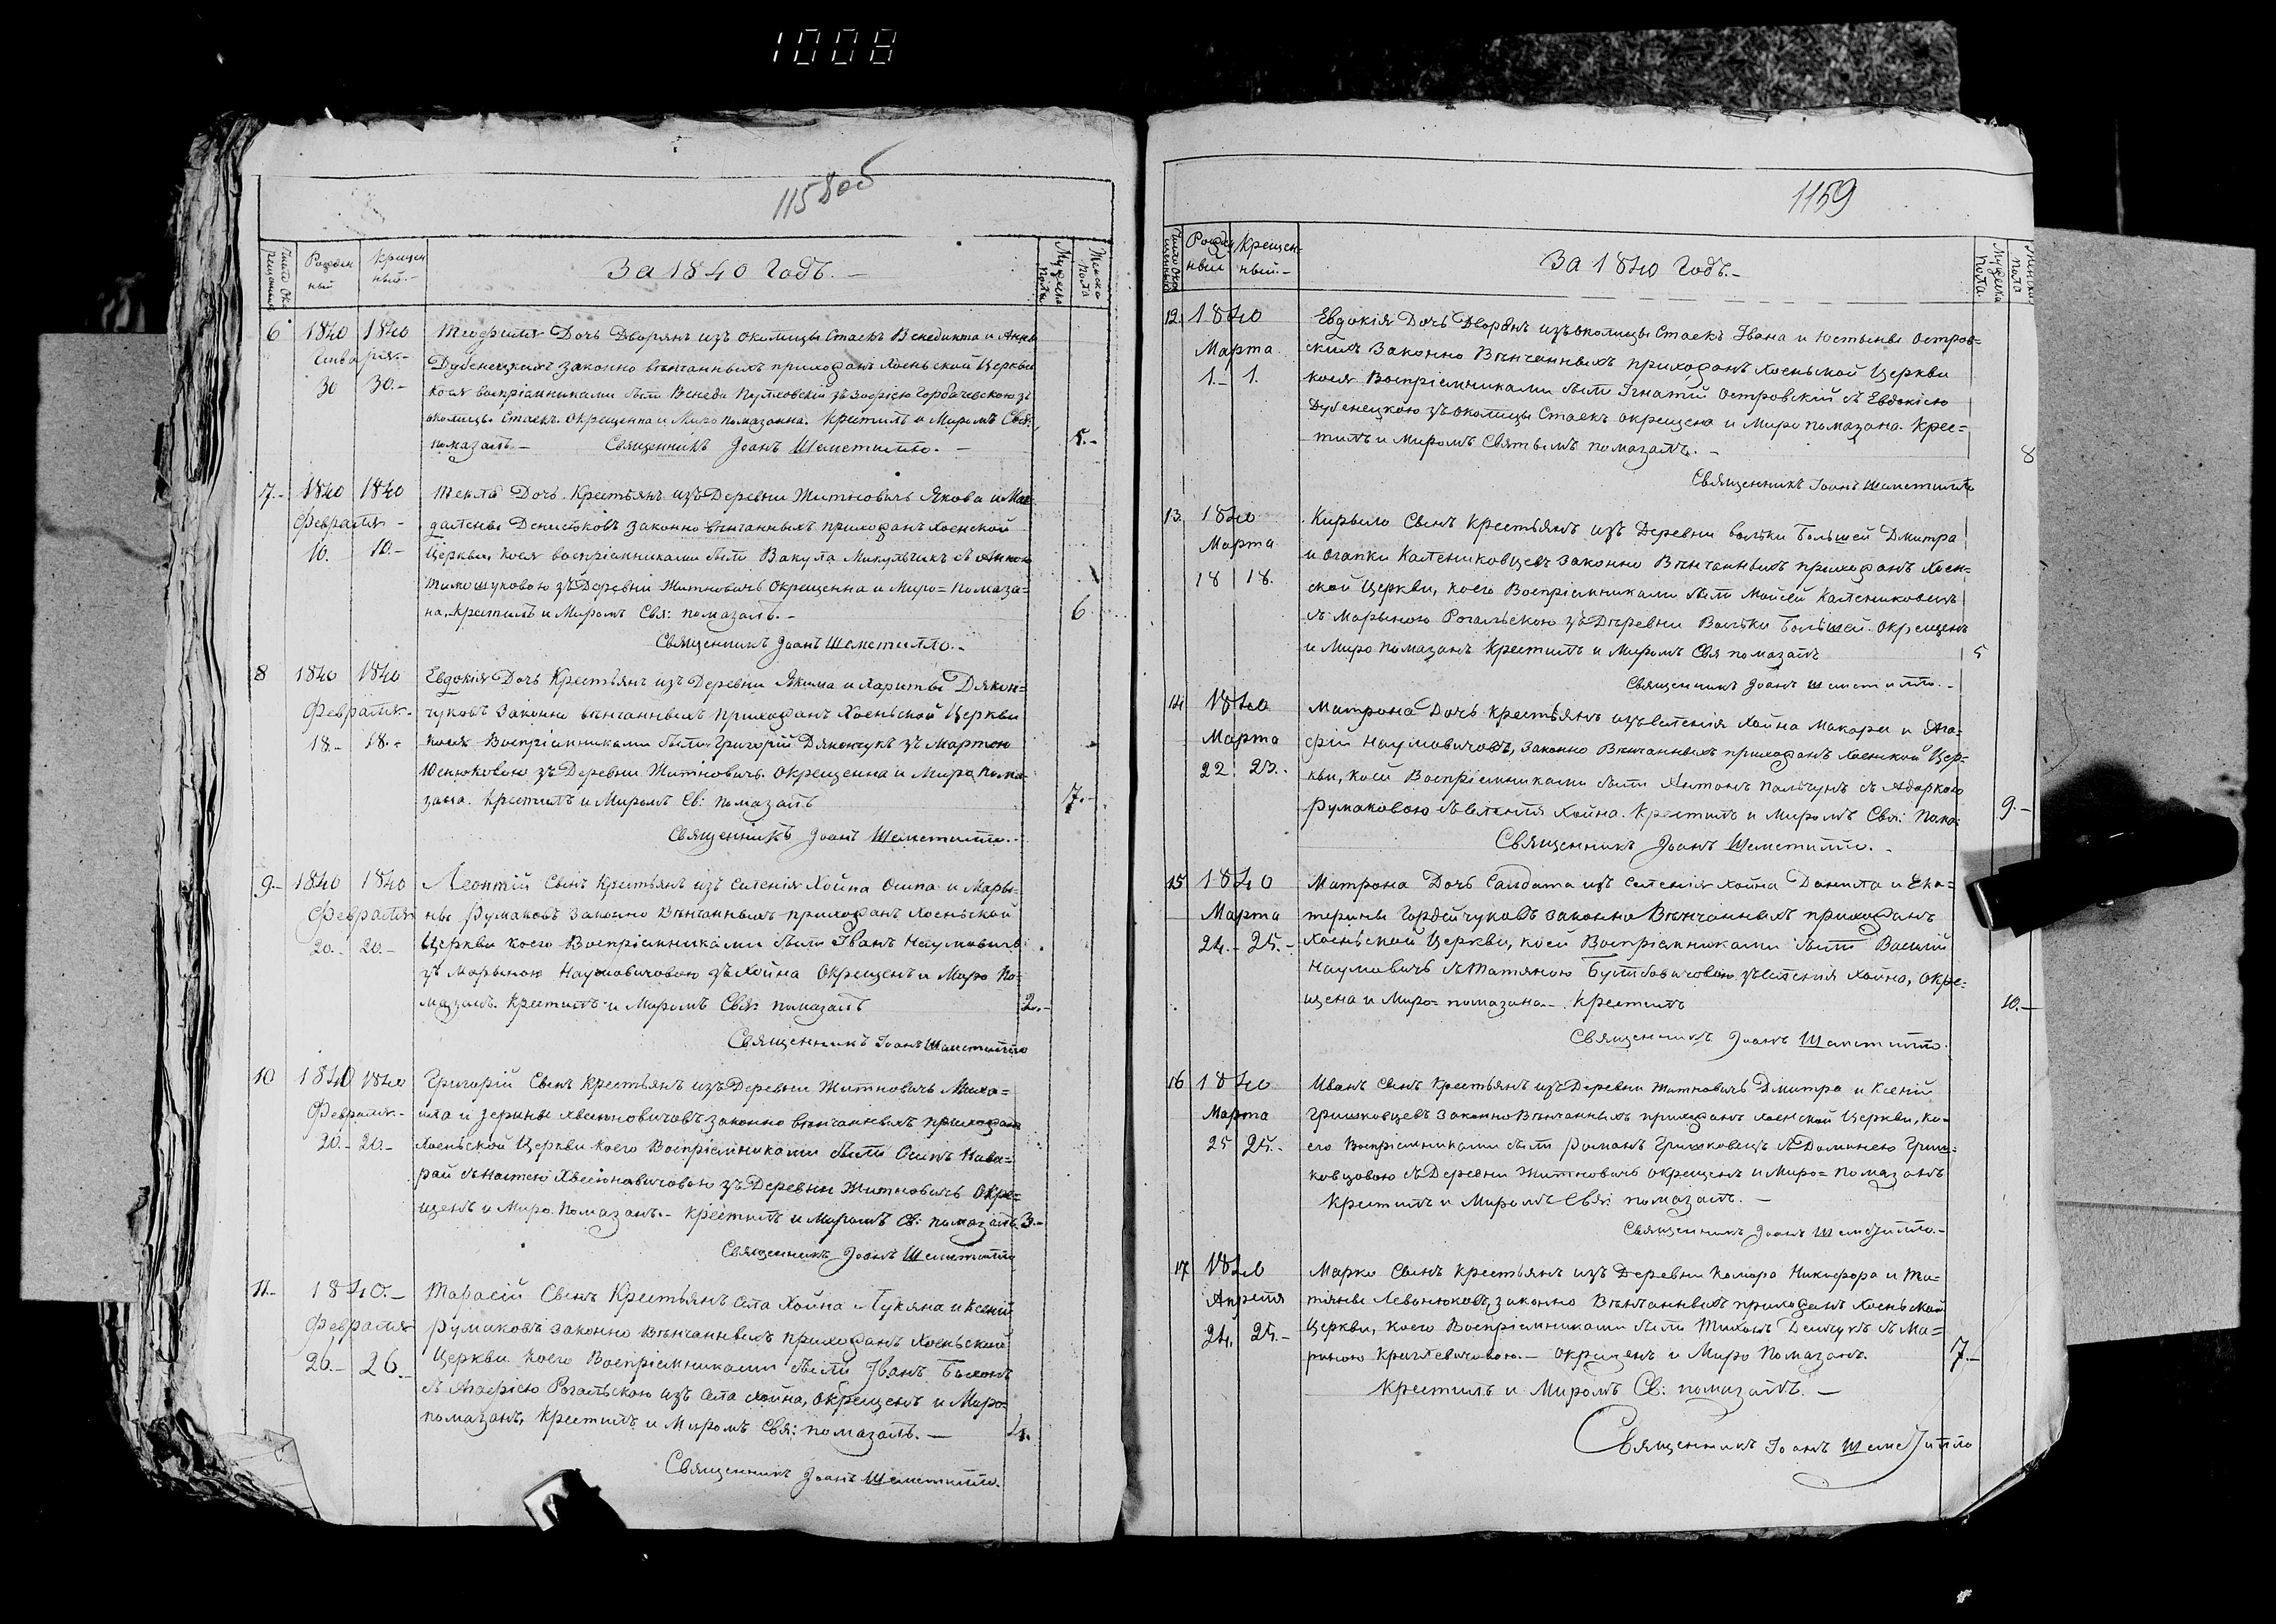 1008
1158об
Число Окрещенныхъ
Рожденный
Крещенный.-
За 1840 Годъ.-
Мужеска пола
Женска пола
6 1840 1840 Теофиля Дочь Дворянъ изъ околицы Стаекъ Венедикта и Анны
Января.- Дубенецкихъ законно вѣнчанныхъ прихожанъ Хоенской Церкви
30 30.- коея воспріемниками были зъ Зофіею Горбачевскою зъ
околицы Стаекъ. Окрещенна и Миро помазанна. Крестилъ и Миромъ Свя:
помазалъ.- Священникъ Іоанъ Шеметилло.- 5.-
7.- 1840 1840 Текля Дочь Крестьянъ изъ Деревни Житновичь Якова и Маг
Февраля- далены Денисюковъ законно вѣнчанныхъ прихожанъ Хоенской
10. 10.- Церкви коея воспріемниками были Вакула Микульчикъ съ Анною
Тимошуковою зъ Деревни Житновичь Окрещенна и Миро=помаза-
на, Крестилъ и Миромъ Свя: помазалъ.- 6
Священникъ Іоанъ Шеметилло.-
8 1840 1840 Евдокія Дочь Крестьянъ изъ Деревни Якима и Хариты Дякон=
Февраля- чуковъ Законно вѣнчанныхъ прихожанъ Хоеньской Церкви
18.- 18.- коея Воспріемниками были Григорій Дякончукъ зъ Мартою
Юсюковою зъ Деревни Житновичь. Окрещенна и Миро пома-
зана. Крестилъ и Миромъ Св: помазалъ 7.-
Священникъ Іоанъ Шеметилло.-
9.- 1840 1840 Леонтій Сынъ Крестьянъ изъ Селенія Хойна Осипа и Мары-
Февраля ны Румаковъ Законно Вѣнчанныхъ прихожанъ Хоеньской
20.- 20.- Церкви коего Воспріемниками были Іванъ Наумовичъ
зъ Марыною Наумовичовою зъ Хойна Окрещенъ и Миро По-
мазанъ. Крестилъ и Миромъ Свя: помазалъ 2.-
Священникъ Іоанъ Шеметилло
10 1840 1840 Григорій Сынъ Крестьянъ изъ Деревни Житновичь Миха=
Февраля.- ила и Зерины законно вѣнчанныхъ прихожан
20.- 20.- Хоеньской Церкви коего Воспріемниками были Осипъ Нава=
рай съ Настею зъ Деревни Житновичь Окре=
щенъ и Миро помазанъ.- Крестилъ и Миромъ Св: помазалъ 3.-
Священникъ Іоанъ Шеметилло
11.- 1840.- Тарасій Сынъ Крестьянъ Села Хойна Лукяна и Ксеніи
Февраля Румаковъ законно Вѣнчанныхъ прихожанъ Хоеньской
26.- 26.- Церкви коего Воспріемниками были Іванъ
съ Агафіею Рогальскою изъ Села Хойна, Окрещенъ и Миро=
помазанъ, Крестилъ и Миромъ Свя: помазалъ.- 4.
Священникъ Іоанъ Шеметилло.
1159
Число Окрещенныхъ
Рожденный
Крещен-ный.-
За 1840 Годъ.-
Мужеска пола.
Женска пола
12. 1840 Евдокія Дочь Дворянъ изъ околицы Стаекъ Івана и Юстыны Остров=
Марта. скихъ Законно Вѣнчанныхъ прихожанъ Хоеньской Церкви
1.- 1. коея Воспріемниками были Ігнатій Островскій съ Евдокіею
Дубенецкою зъ околицы Стаекъ окрещена и Миро помазана. Крес=
тилъ и Миромъ Святымъ помазалъ.- 8
Священникъ Іоанъ Шеметилло
13. 1840 Кирыло Сынъ Крестьянъ изъ Деревни Вольки Большей Дмитра
Марта и Огапки Калениковцевъ Законно Вѣнчанныхъ прихожанъ Хоен-
18 18. ской Церкви, коего Воспріемниками были Мойсей Калениковецъ
съ Марыною Рогальскою зъ Деревни Вольки Большей. Окрещенъ
и Миро помазанъ Крестилъ и Миромъ Свя помазалъ 5
Священникъ Іоанъ Шеметилло.-
14 1840 Матрона Дочь Крестьянъ изъ селенія Хойна Макара и Ага-
Марта фіи Наумовичовъ, законно Вѣнчанныхъ прихожанъ Хоенской Цер-
22. 23.- кви, коей Воспріемниками были Антонъ Пальчунъ съ Адаркою
Румаковою съ селенія Хойна. Крестилъ и Миромъ Свя: Пома: 9.-
Священникъ Іоанъ Шеметилло.-
15 1840 Матрона Дочь Салдата изъ селенія Хойна Данила и Ека=
Марта терины Гордейчуковъ законно Вѣнчанныхъ прихожанъ
24.- 25.- Хоеньской Церкви, коей Воспріемниками были Василій
Наумовичъ съ Татяною зъ селенія Хойна, Окре-
щена и Миро=помазана.- Крестилъ 10.-
Священникъ Іоанъ Шеметилло.
16 1840 Иванъ Сынъ Крестьянъ изъ Деревни Житновичь Дмитра и Ксеніи
Марта Гришковцевъ законно Вѣнчанныхъ прихожанъ Хоенской Церкви, ко-
25 25.- его Воспріемниками были Романъ Гришковецъ съ Домнею Гриш-
ковцовою съ Деревни Житновичь окрещенъ и Миро=помазанъ
Крестилъ и Миромъ Свя: помазалъ.-
Священникъ Іоанъ Шеметилло.-
17 1840 Марко Сынъ Крестьянъ изъ Деревни Комора Никифора и Та-
Апреля тяны Леванюковъ, законно Вѣнчанныхъ прихожанъ Хоеньской
24. 25.- Церкви, коего Воспріемниками были Тихонъ съ Ма=
риною .- Окрещенъ и Миро Помазанъ. 7.-
Крестилъ и Миромъ Св: помазалъ.-
Священникъ Іоанъ Шеметилло